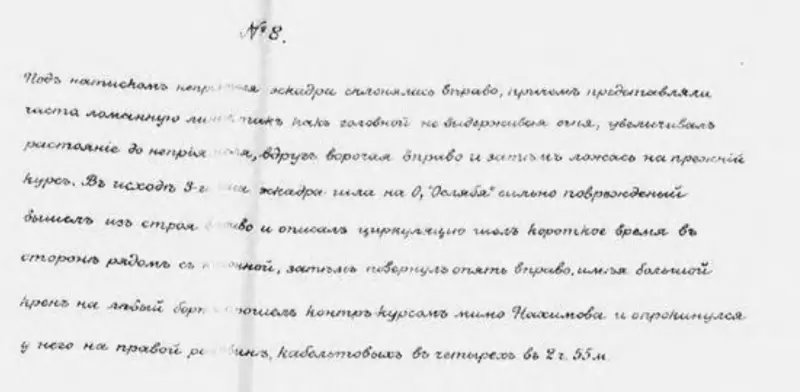 № 8.
Подъ натискомъ эскадра склонялась вправо, причемъ представляли
часто ломанную какъ головной не выдерживая огня, увеличивалъ
растояніе до вдругъ ворочая вправо и затѣмъ ложась на прежній
курсъ. Въ исходѣ 3-г эскадра шла на О, "Ослябя" сильно поврежденый
вышелъ изъ строя и описалъ циркуляцію шелъ короткое время въ
сторонѣ рядомъ съ затѣмъ повернулъ опять вправо, имѣя большой
кренъ на лѣвый контръ-курсомъ мимо Нахимова и опрокинулся
у него на правой кабельтовыхъ въ четырехъ въ 2 ч. 55 м.